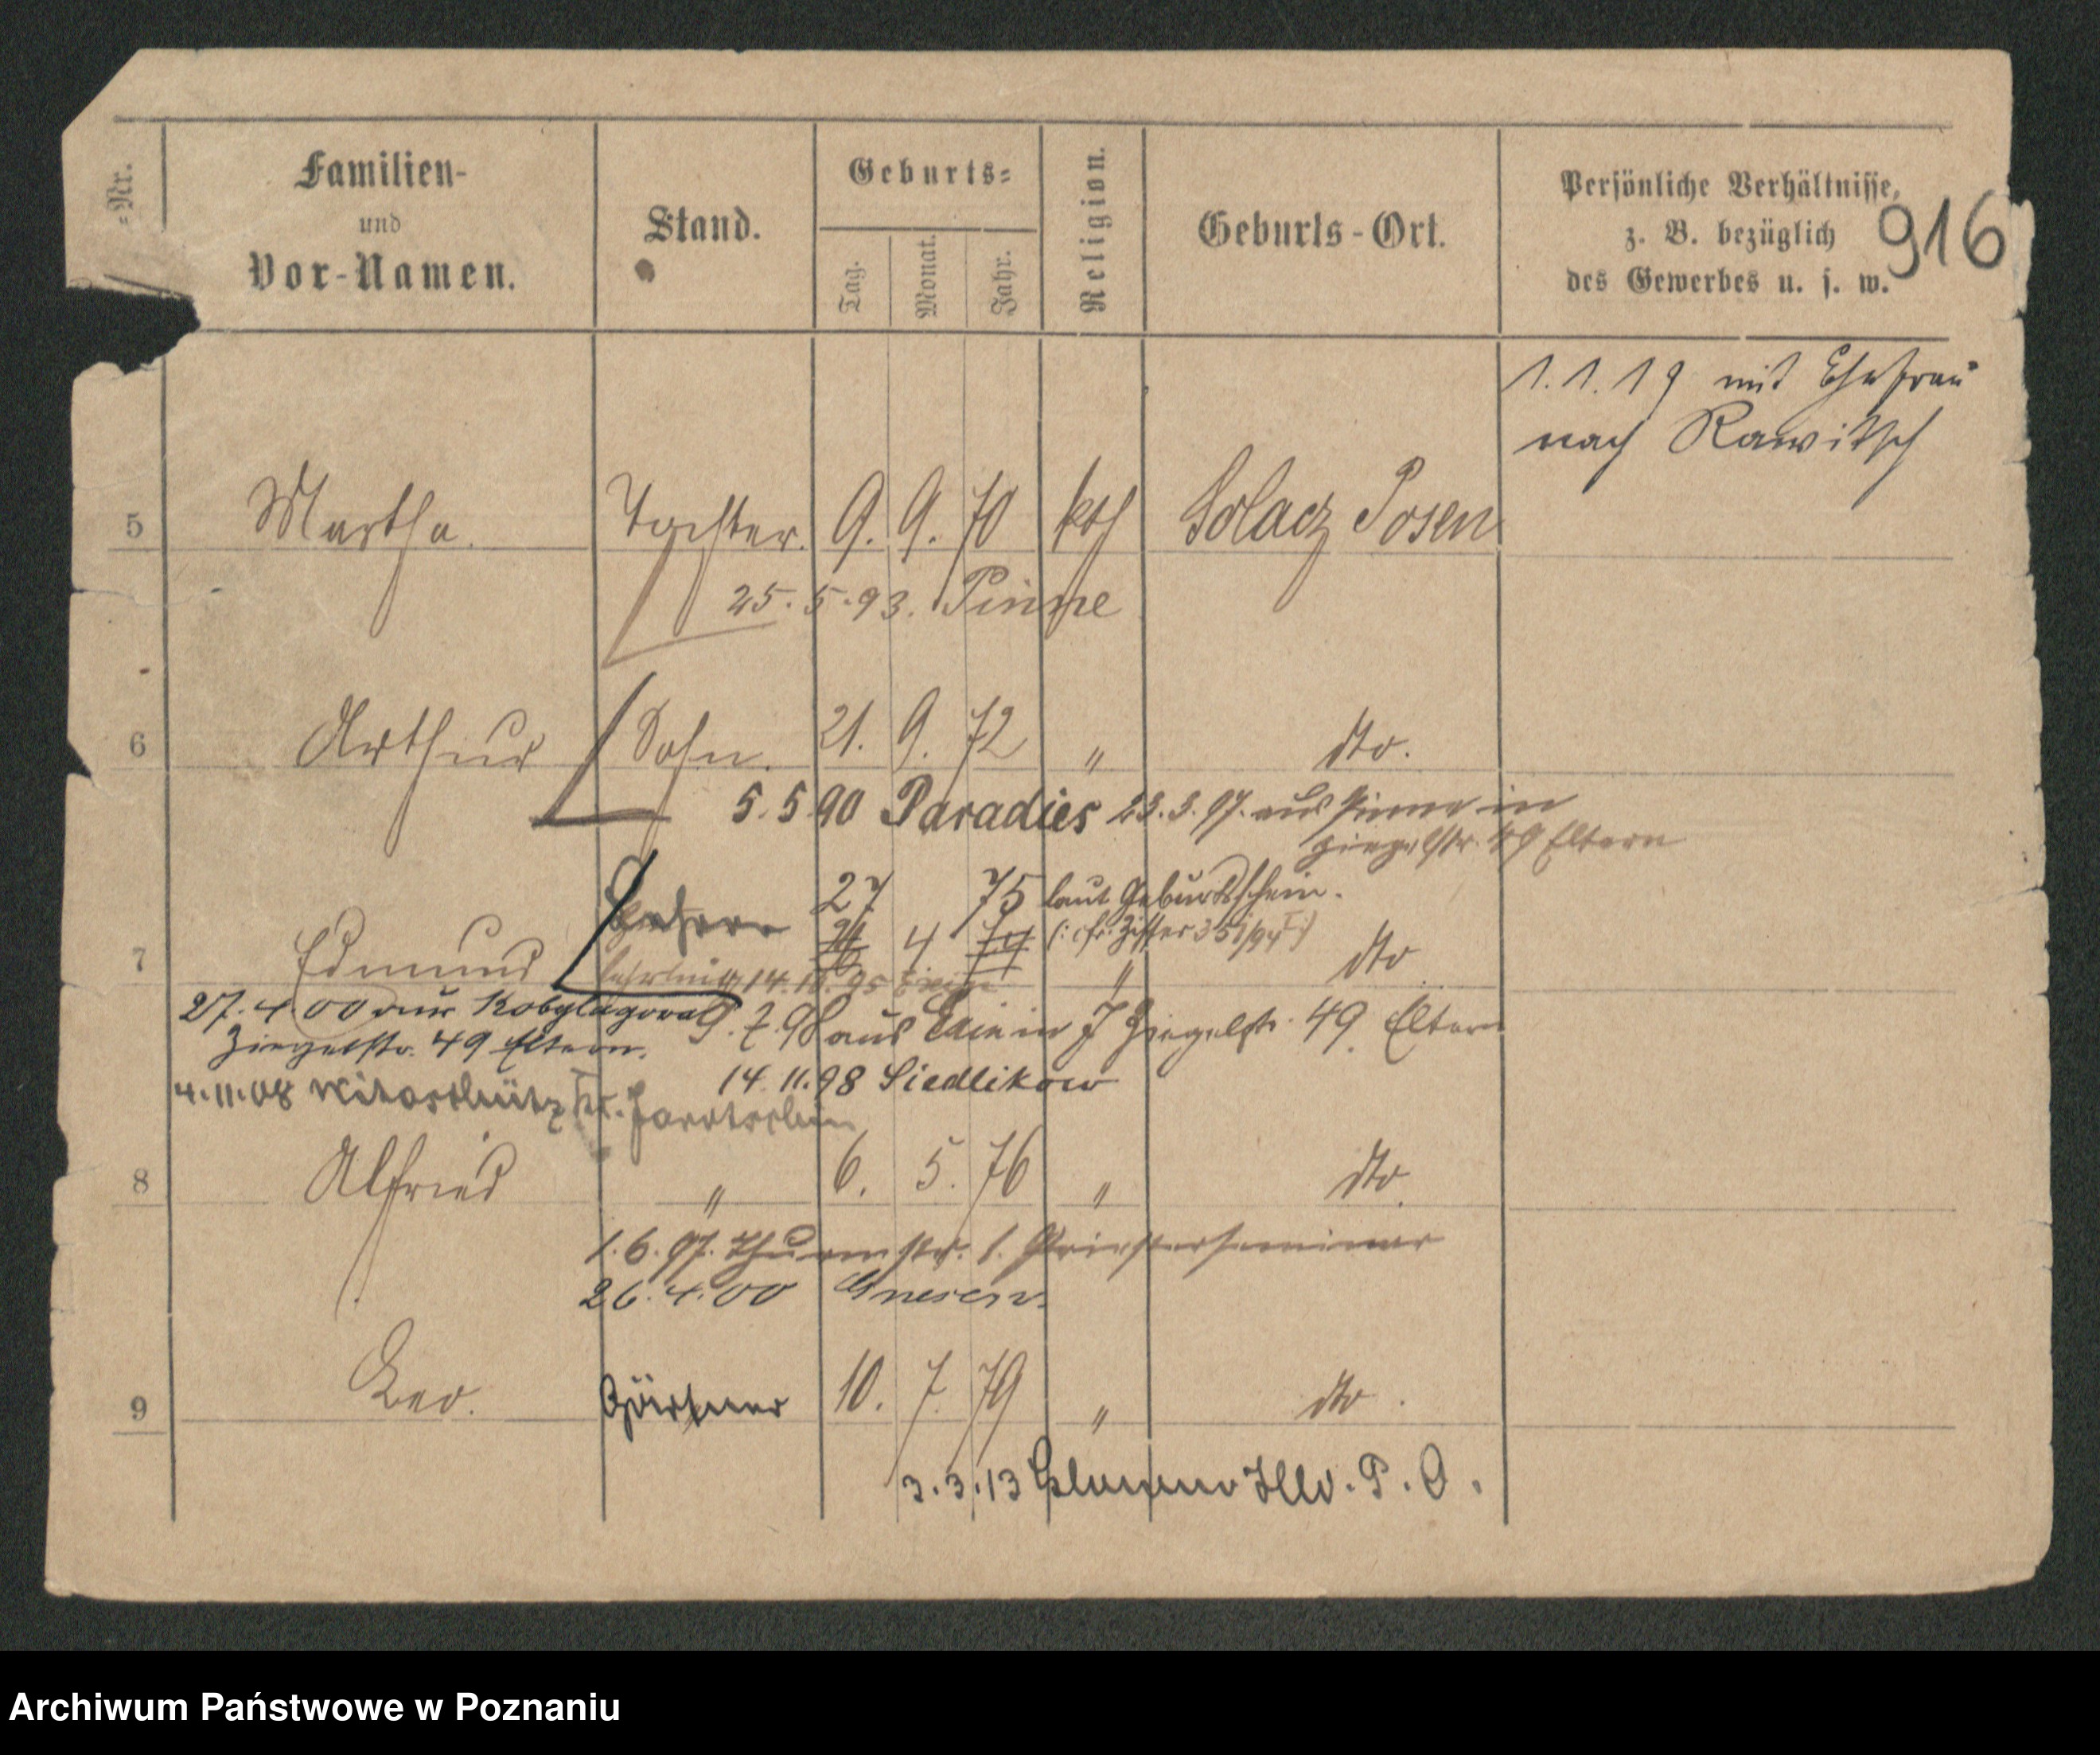 =Nr.
Familien-
und
Vor-Namen.
Stand.
Geburts=
Tag.
Monat.
Jahr.
Religion.
Geburts-Ort.
Persönliche Verhältnisse,
z. B. bezüglich
des Gewerbes u. s. w.
916
1.1.19 mit Ehefrau
nach Rawitsch
5 Martha. Tochter. 9. 9. 70 kath Solacz Posen
25.5.93. Pinne
6 Arthur Sohn. 21. 9. 72 " dto.
5.5.90 Paradies 23.3.97. aus Pinne in
Ziegelstr. 49 Eltern
27 75 laut Geburtsschein.
(: cfr. Ziffer 351/94
7 Edmund Lehrer 4 " dto
14.10.95 Exin
27.4.00 aus Kobylagora 9.7.98 aus Exin in J Ziegelstr. 49 Eltern
Ziegelstr. 49 Eltern.
14.11.98 Siedlikow
4.11.08 Witaschütz Kr. Jarotschin
8 Alfred " 6. 5. 76 " dto.
1.6.97. Thurmstr. 1. Priesterseminar
26.4.00 Gnesen.
9 Leo. Gärtner 10. 7. 79 " dto.
3.3.13 P. O.
Archiwum Państwowe w Poznaniu